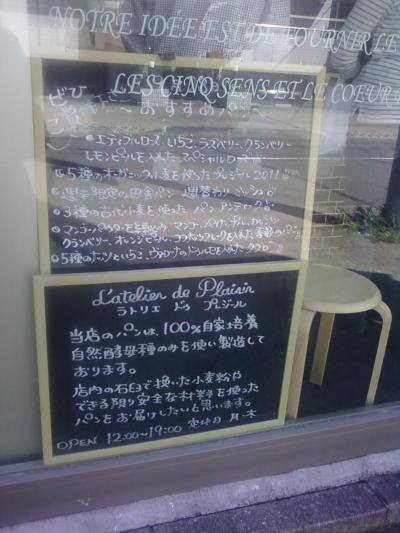 NOTRE IDEE EST DE FOURNIR LE
LES CINQ SENS ET LE COEUR
〜おすすめパン〜
エディブルローズ、いちご、ラズベリー、クランベリー
レモンピールを入れたスペシャル
5種のオーガニック小麦を使ったプレジール2011
週末限定の田舎パン 週替わり
3種の古代小麦を使った パン アンティーク
マンゴーパウダーを マンゴー、パイナップル、カレンツ
クランベリー、オレンジピール、ココナッツフレークを入れた季節のパン
5種のナッツといちご、
L'atelier de Plaisir
ラトリエ ドゥ プレジール
当店のパンは、100%自家培養
自然酵母種のみを使い製造して
おります。
店内の石臼で挽いた小麦粉及
できる限り安全な材料を使った
パンをお届けしたいと思います。
OPEN 12:00〜19:00 定休日 月・木